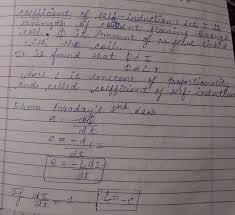 coefficient of self induction: Let I is
strength of current flowing through
coil. Φ is Amount of flux linked
with the coil.
It is found that Φ α I
Φ = L I
where L is constant of proportionality
and called coefficient of self induction
From Faraday's 2nd law
e = -dΦ/dt
e = -d LI/dt
e = -L dI/dt
If dI/dt = 1 L = -e